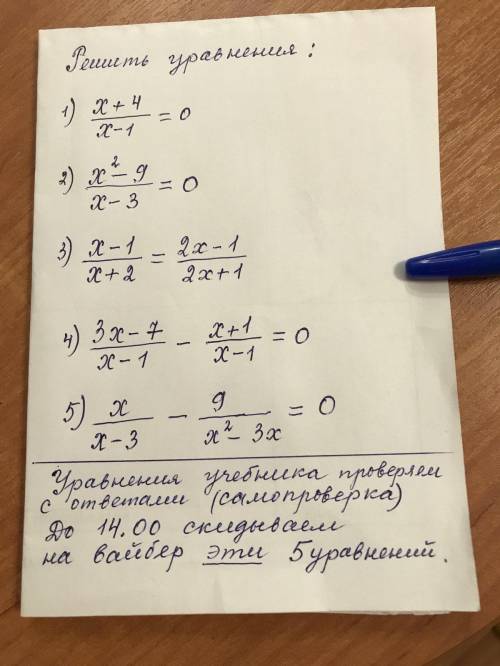 Решить уравнения:
1) (x+4)/(x-1) = 0
2) (x²-9)/(x-3) = 0
3) (x-1)/(x+2) = (2x-1)/(2x+1)
4) (3x-7)/(x-1) - (x+1)/(x-1) = 0
5) x/(x-3) - 9/(x²-3x) = 0
Уравнения учебника проверяем
с ответами (самопроверка)
До 14.00 скидываем
на вайбер эти 5 уравнений.